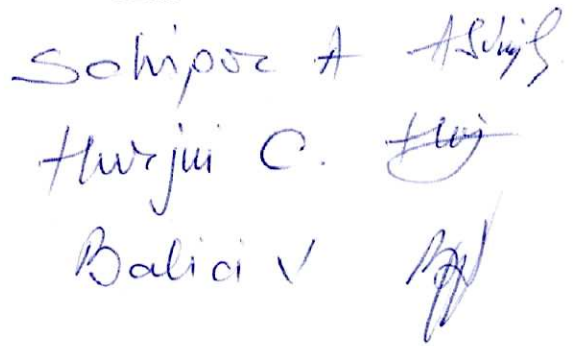 Schipor A
Hurjui C.
Balici V